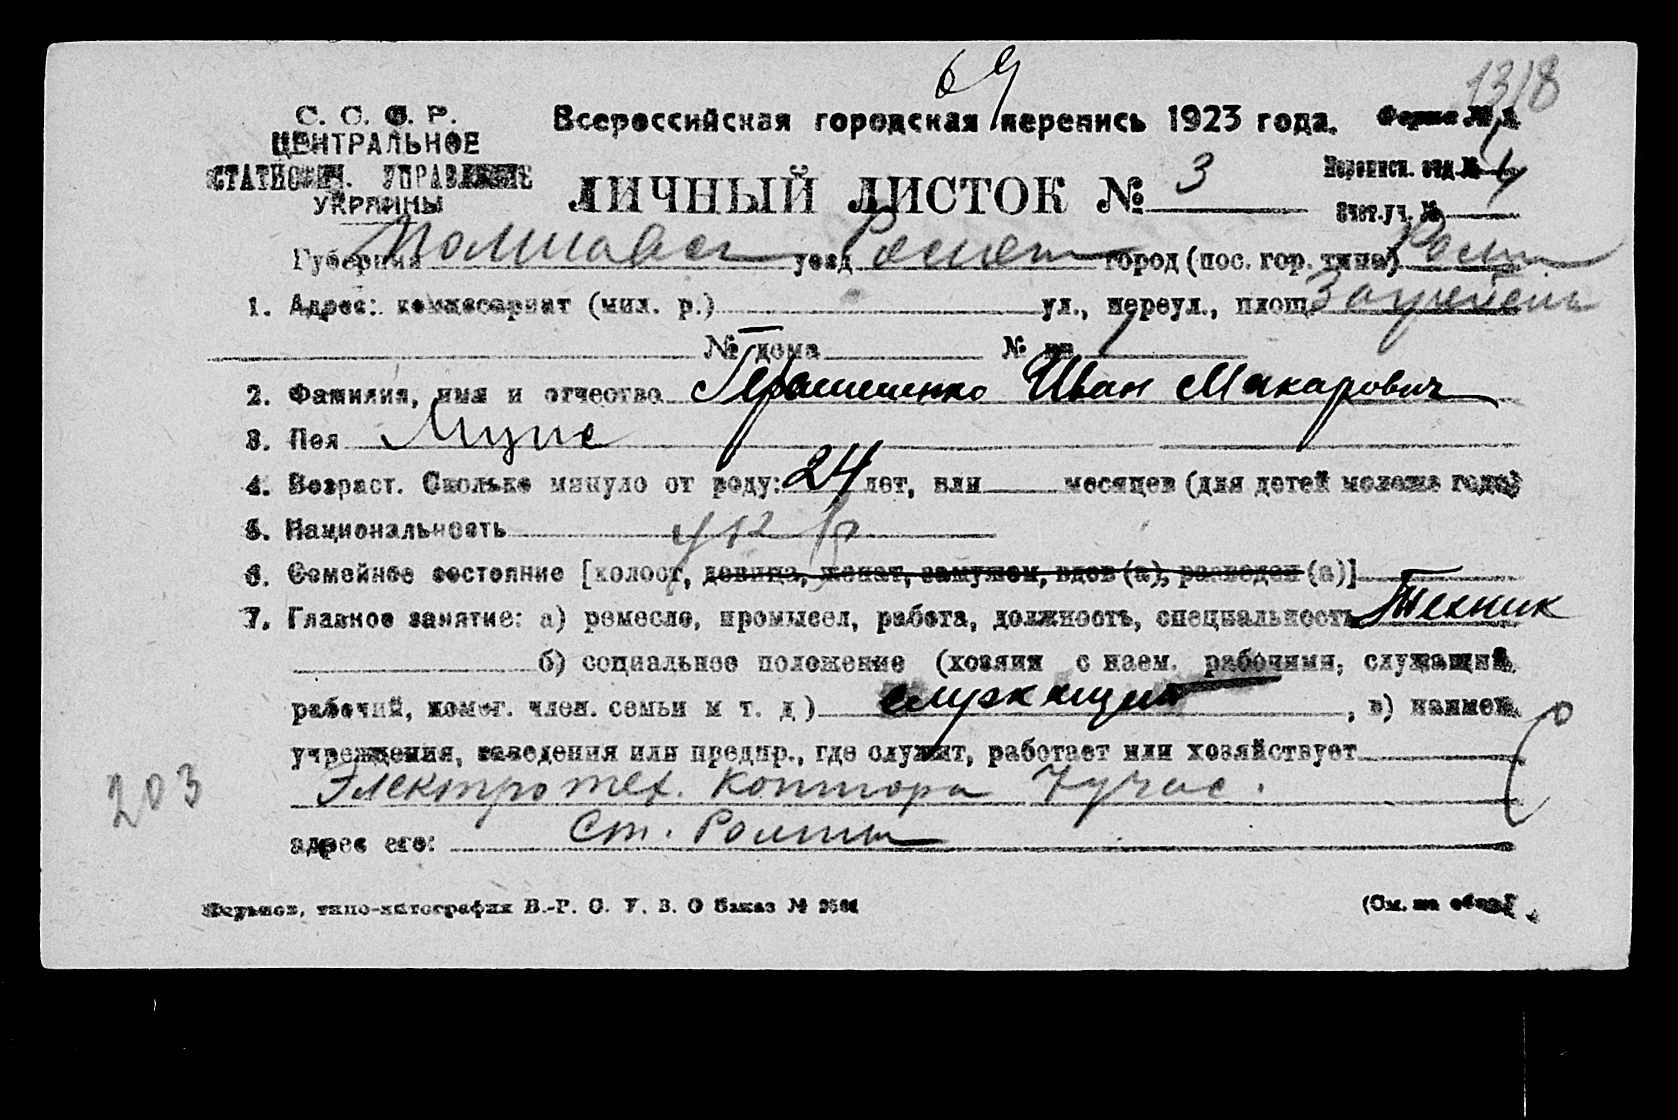 69
1318
С. С. С. Р.
ЦЕНТРАЛЬНОЕ
СТАТИСТИЧ. УПРАВЛЕНИЕ
УКРАИНЫ
Всероссийская городская перепись 1923 года.
Форма № 1.
ЛИЧНЫЙ ЛИСТОК № 3
Переписн. отд. № 4
Счет. уч. №
Губерния Полтавск уезд город (пос. гор. типа)
1. Адрес: комиссариат (мил. р.) ул., переул., площ.
№ дома № кв.
2. Фамилия, имя и отчество Герашченко Иван Макарович
3. Пол Мужс
4. Возраст. Сколько минуло от роду: 24 лет, или месяцев (для детей моложе года)
5. Национальность укр
6. Семейное состояние [холост, девица, женат, замужем, вдов (а), разведен (а)]
7. Главное занятие: а) ремесло, промысел, работа, должность, специальность Техник
б) социальное положение (хозяин с наем. рабочими, служащий,
рабочий, помог. член. семьи и т. д) служащий, в) наимен.
учреждения, заведения или предпр., где служит, работает или хозяйствует
Электротех. контора
203
адрес его: Ст.
Харьков, типо-литография В.-Р. С. У. В. О Заказ №
(См. на обор.)